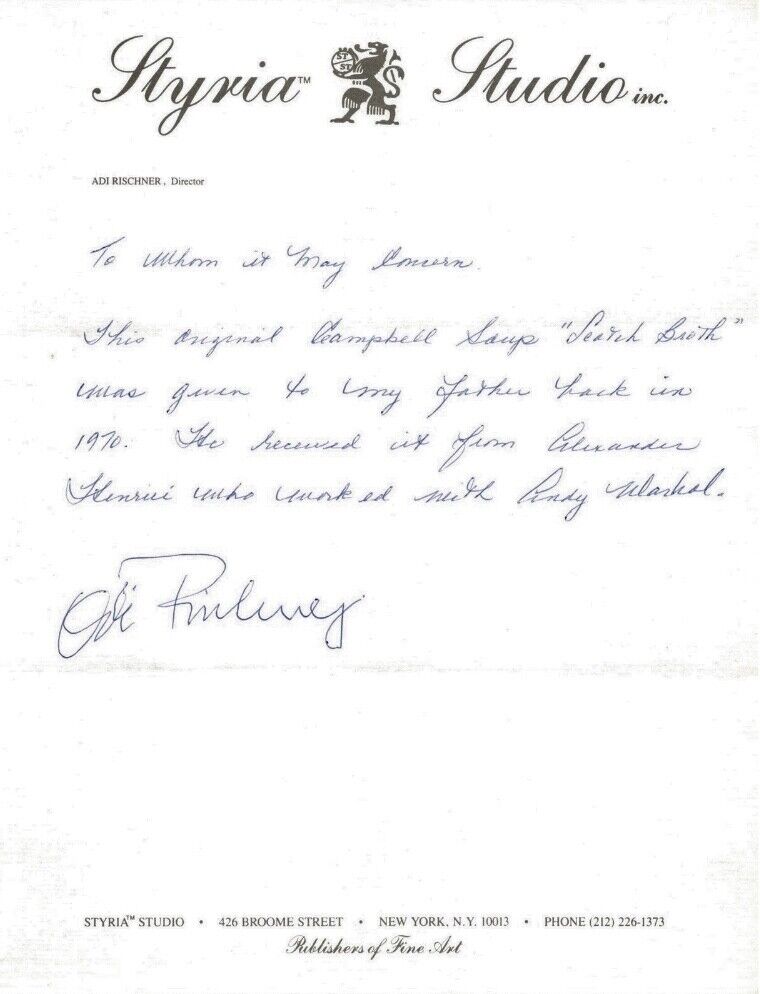 Styria™ ST ST Studio inc.
ADI RISCHNER, Director
To Whom it May Concern.
This original Campbell Soup "Scotch Broth"
was given to my father back in
1970. He received it from Alexander
Henrici who worked with Andy Warhol.
Adi
STYRIA™ STUDIO • 426 BROOME STREET • NEW YORK, N.Y. 10013 • PHONE (212) 226-1373
Publishers of Fine Art